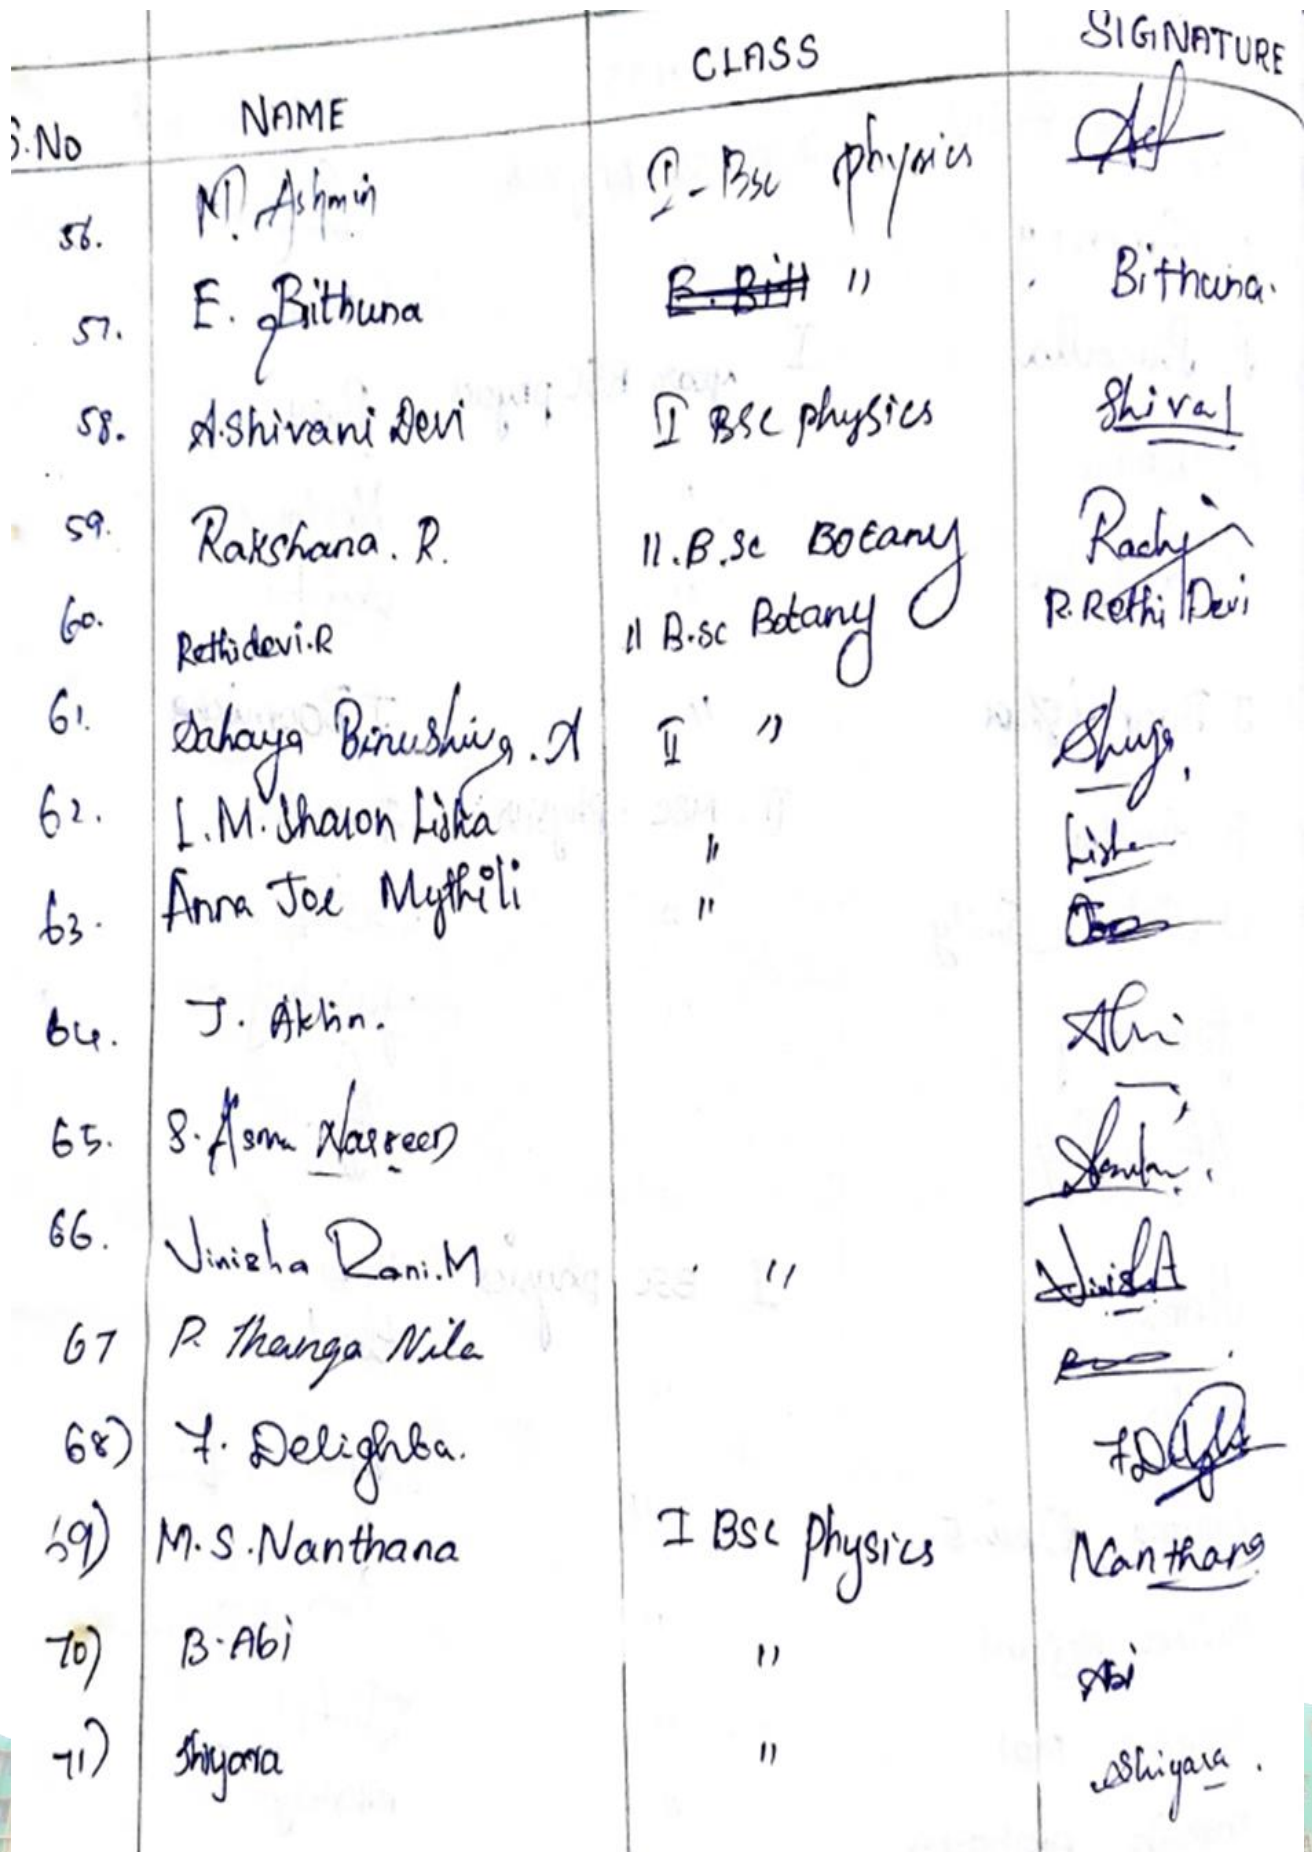 S.No NAME CLASS SIGNATURE
56. M. Ashmin II - Bsc physics
57. E. Bithuna E. Bitt " Bithuna.
58. A.Shivani Devi II BSC physics Shiva
59. Rakshana. R. II.B.Sc Botany
60. Rethidevi.R II B.sc Botany R.Rethi Devi
61. Sahaya Binushiya. A II " Shiya
62. L.M. Sharon Liska " Liska
63. Anna Joe Mythili "
64. J. Aklin.
65. S. Asma Nasreen
66. Vinisha Rani.M "
67 P. Thanga Nila
68) F. Delighba.
69) M.S. Nanthana I BSC physics Nanthana
70) B. Abi " Abi
71) Shiyara " Shiyara.